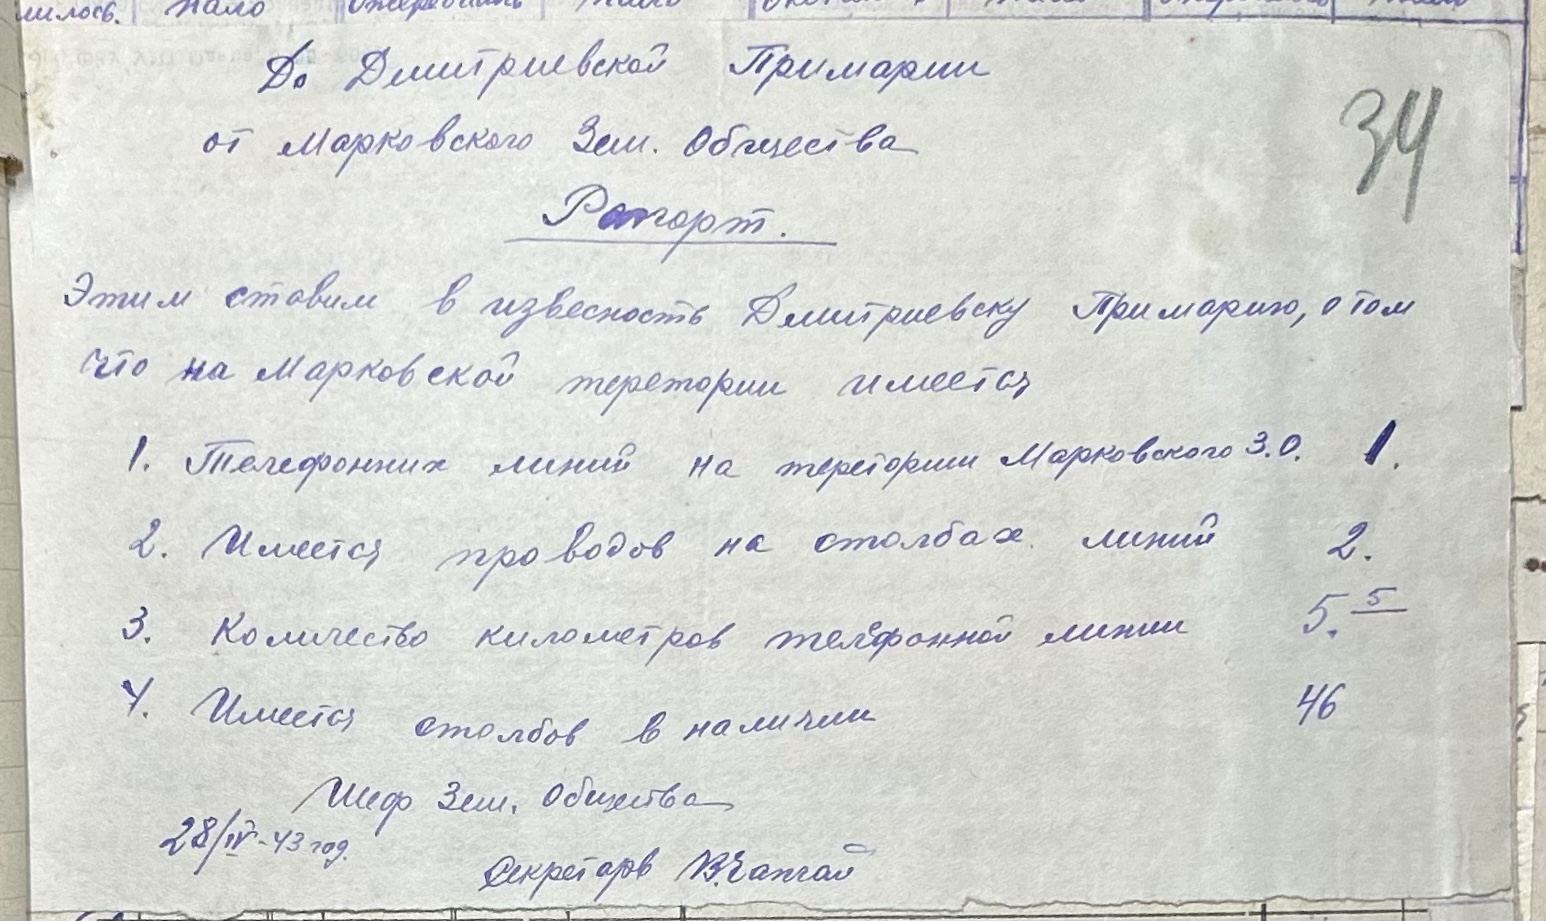 До Дмитриевской Примарии
от Марковского Зем. Общества
34
Рапорт.
Этим ставим в извесность Дмитриевску Примарию, о том
что на Марковской теретории имеется
1. Телефонних линий на теретории Марковского З.О. 1.
2. Имеется проводов на столбах линий 2.
3. Количество километров телефонной линии 5. 5
4. Имеется столбов в наличии 46
Шеф Зем. Общества
28/IV-43 год.
Секретарь